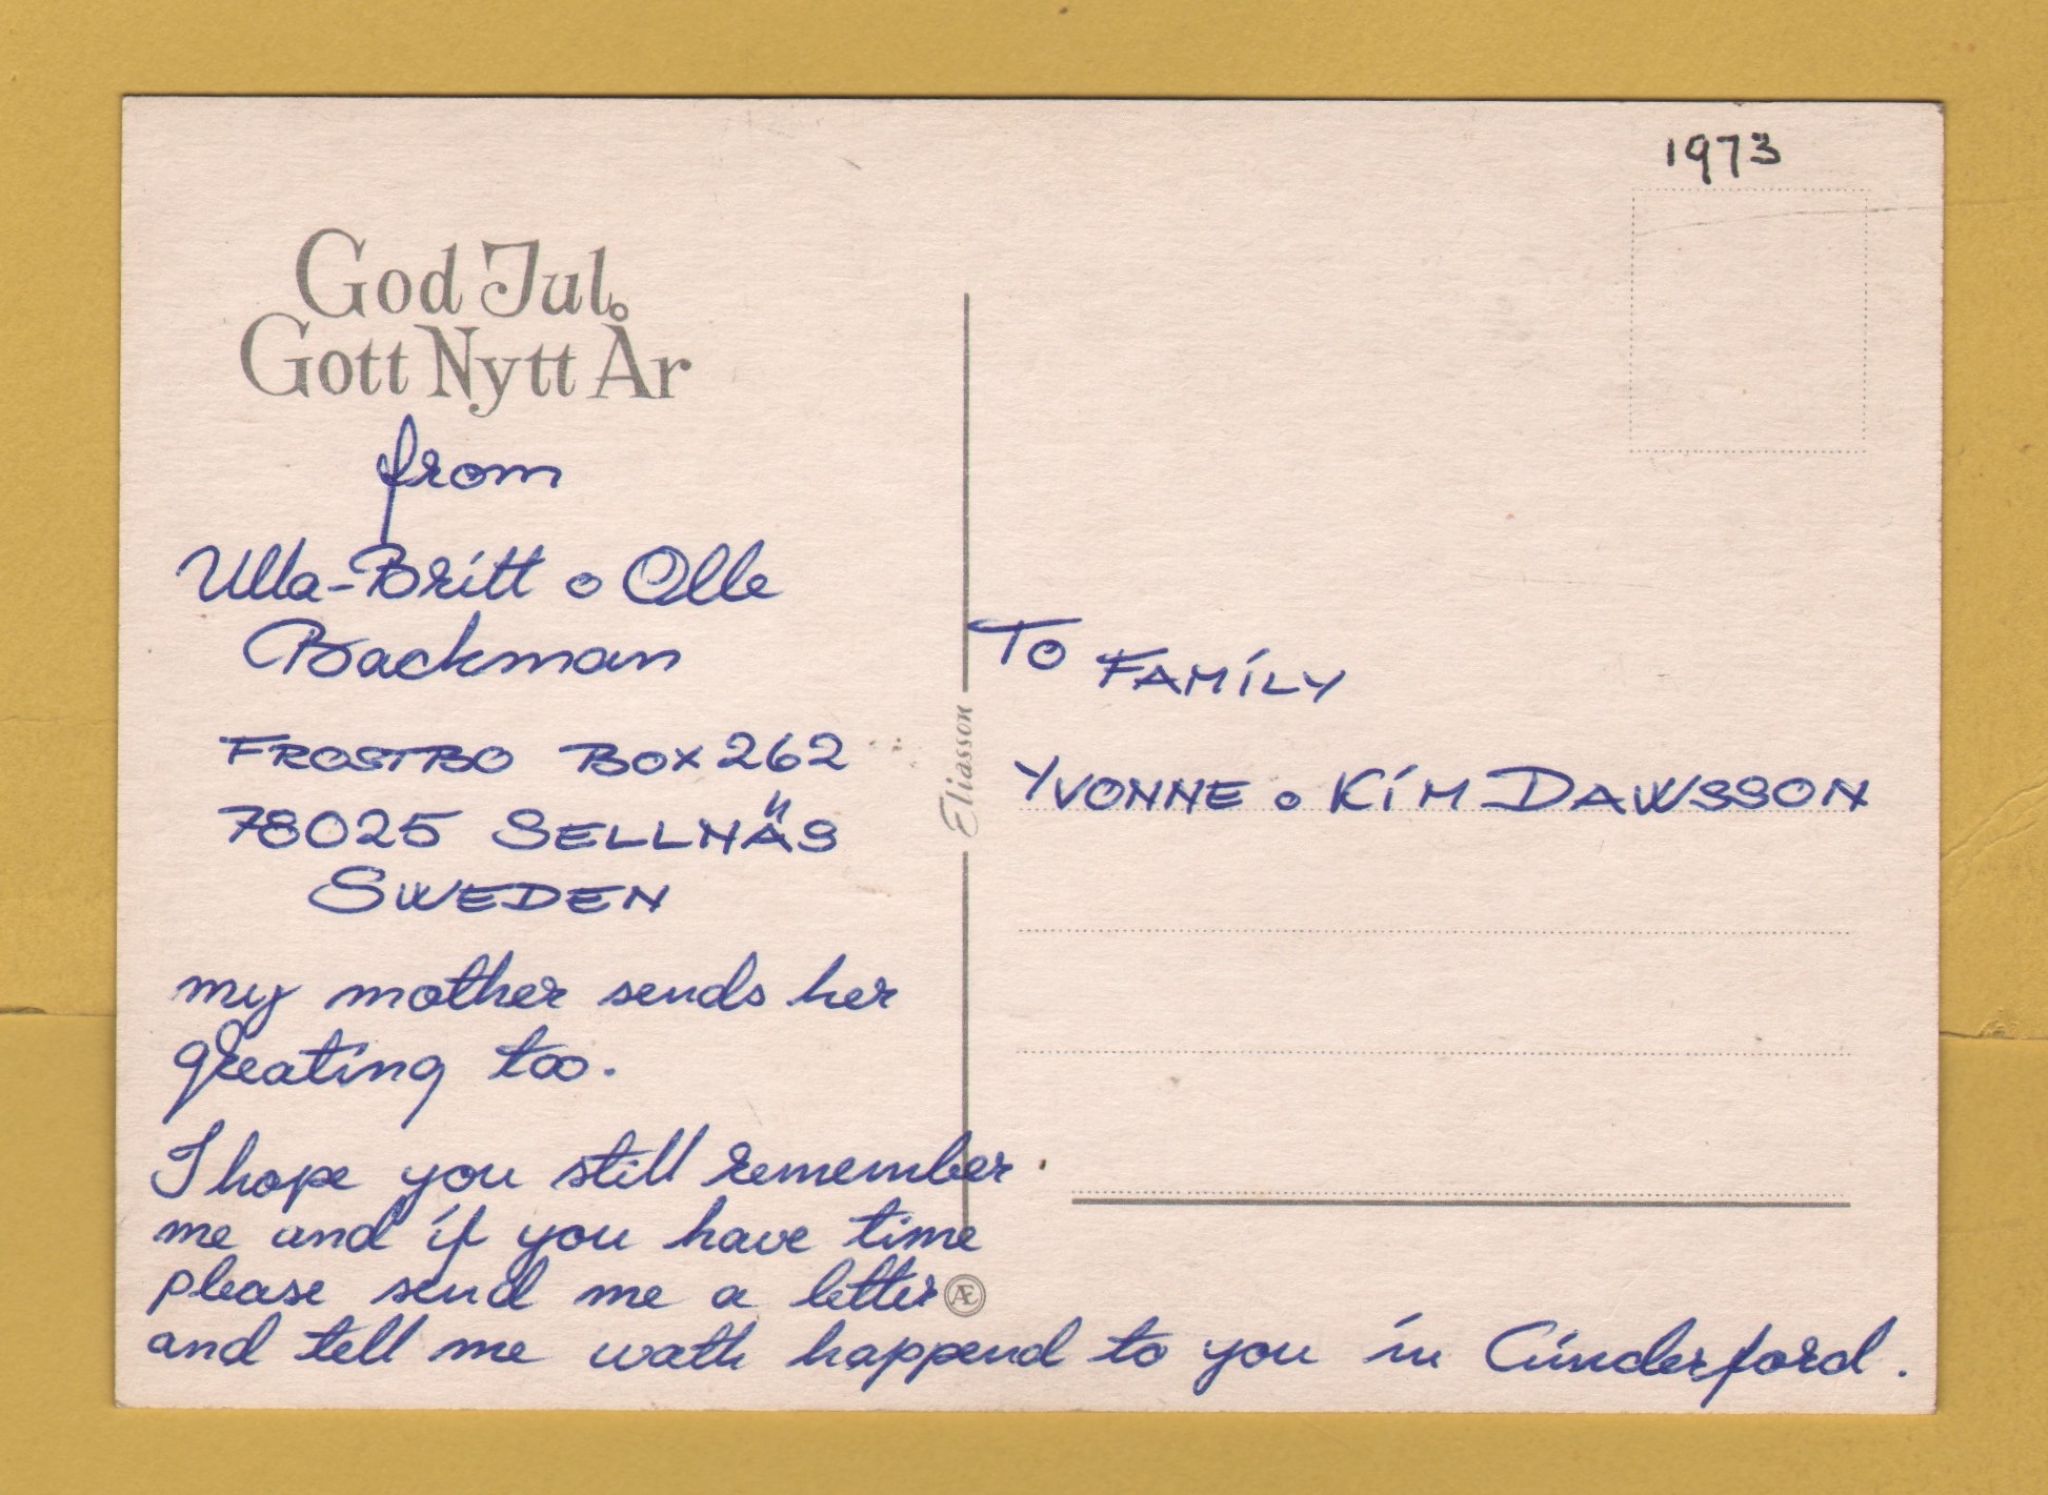 1973
God Jul.
Gott Nytt År
from
Ulla-Britt o Olle
Backman
FROSTBO BOX 262
78025 SELLNÄS
SWEDEN
my mother sends her
greating too.
I hope you still remember
me and if you have time
please send me a letter
and tell me wath happend to you in Cinderford.
Eliasson
Æ
TO FAMILY
YVONNE o KIM DAWSSON